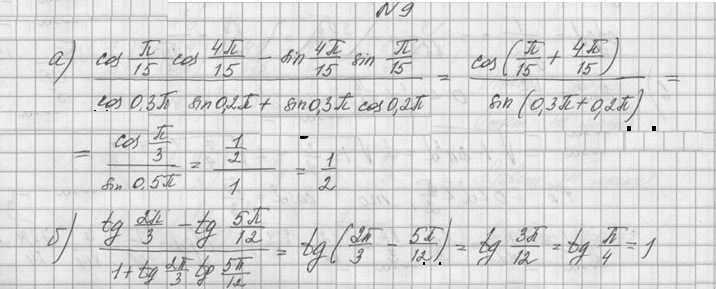 N9
а) (cos π/15 cos 4π/15 - sin 4π/15 sin π/15) / (cos 0,3π sin 0,2π + sin 0,3π cos 0,2π) = cos(π/15 + 4π/15) / sin(0,3π + 0,2π) =
= (cos π/3) / (sin 0,5π) = (1/2) / 1 = 1/2
б) (tg 2π/3 - tg 5π/12) / (1 + tg 2π/3 tg 5π/12) = tg(2π/3 - 5π/12) = tg 3π/12 = tg π/4 = 1